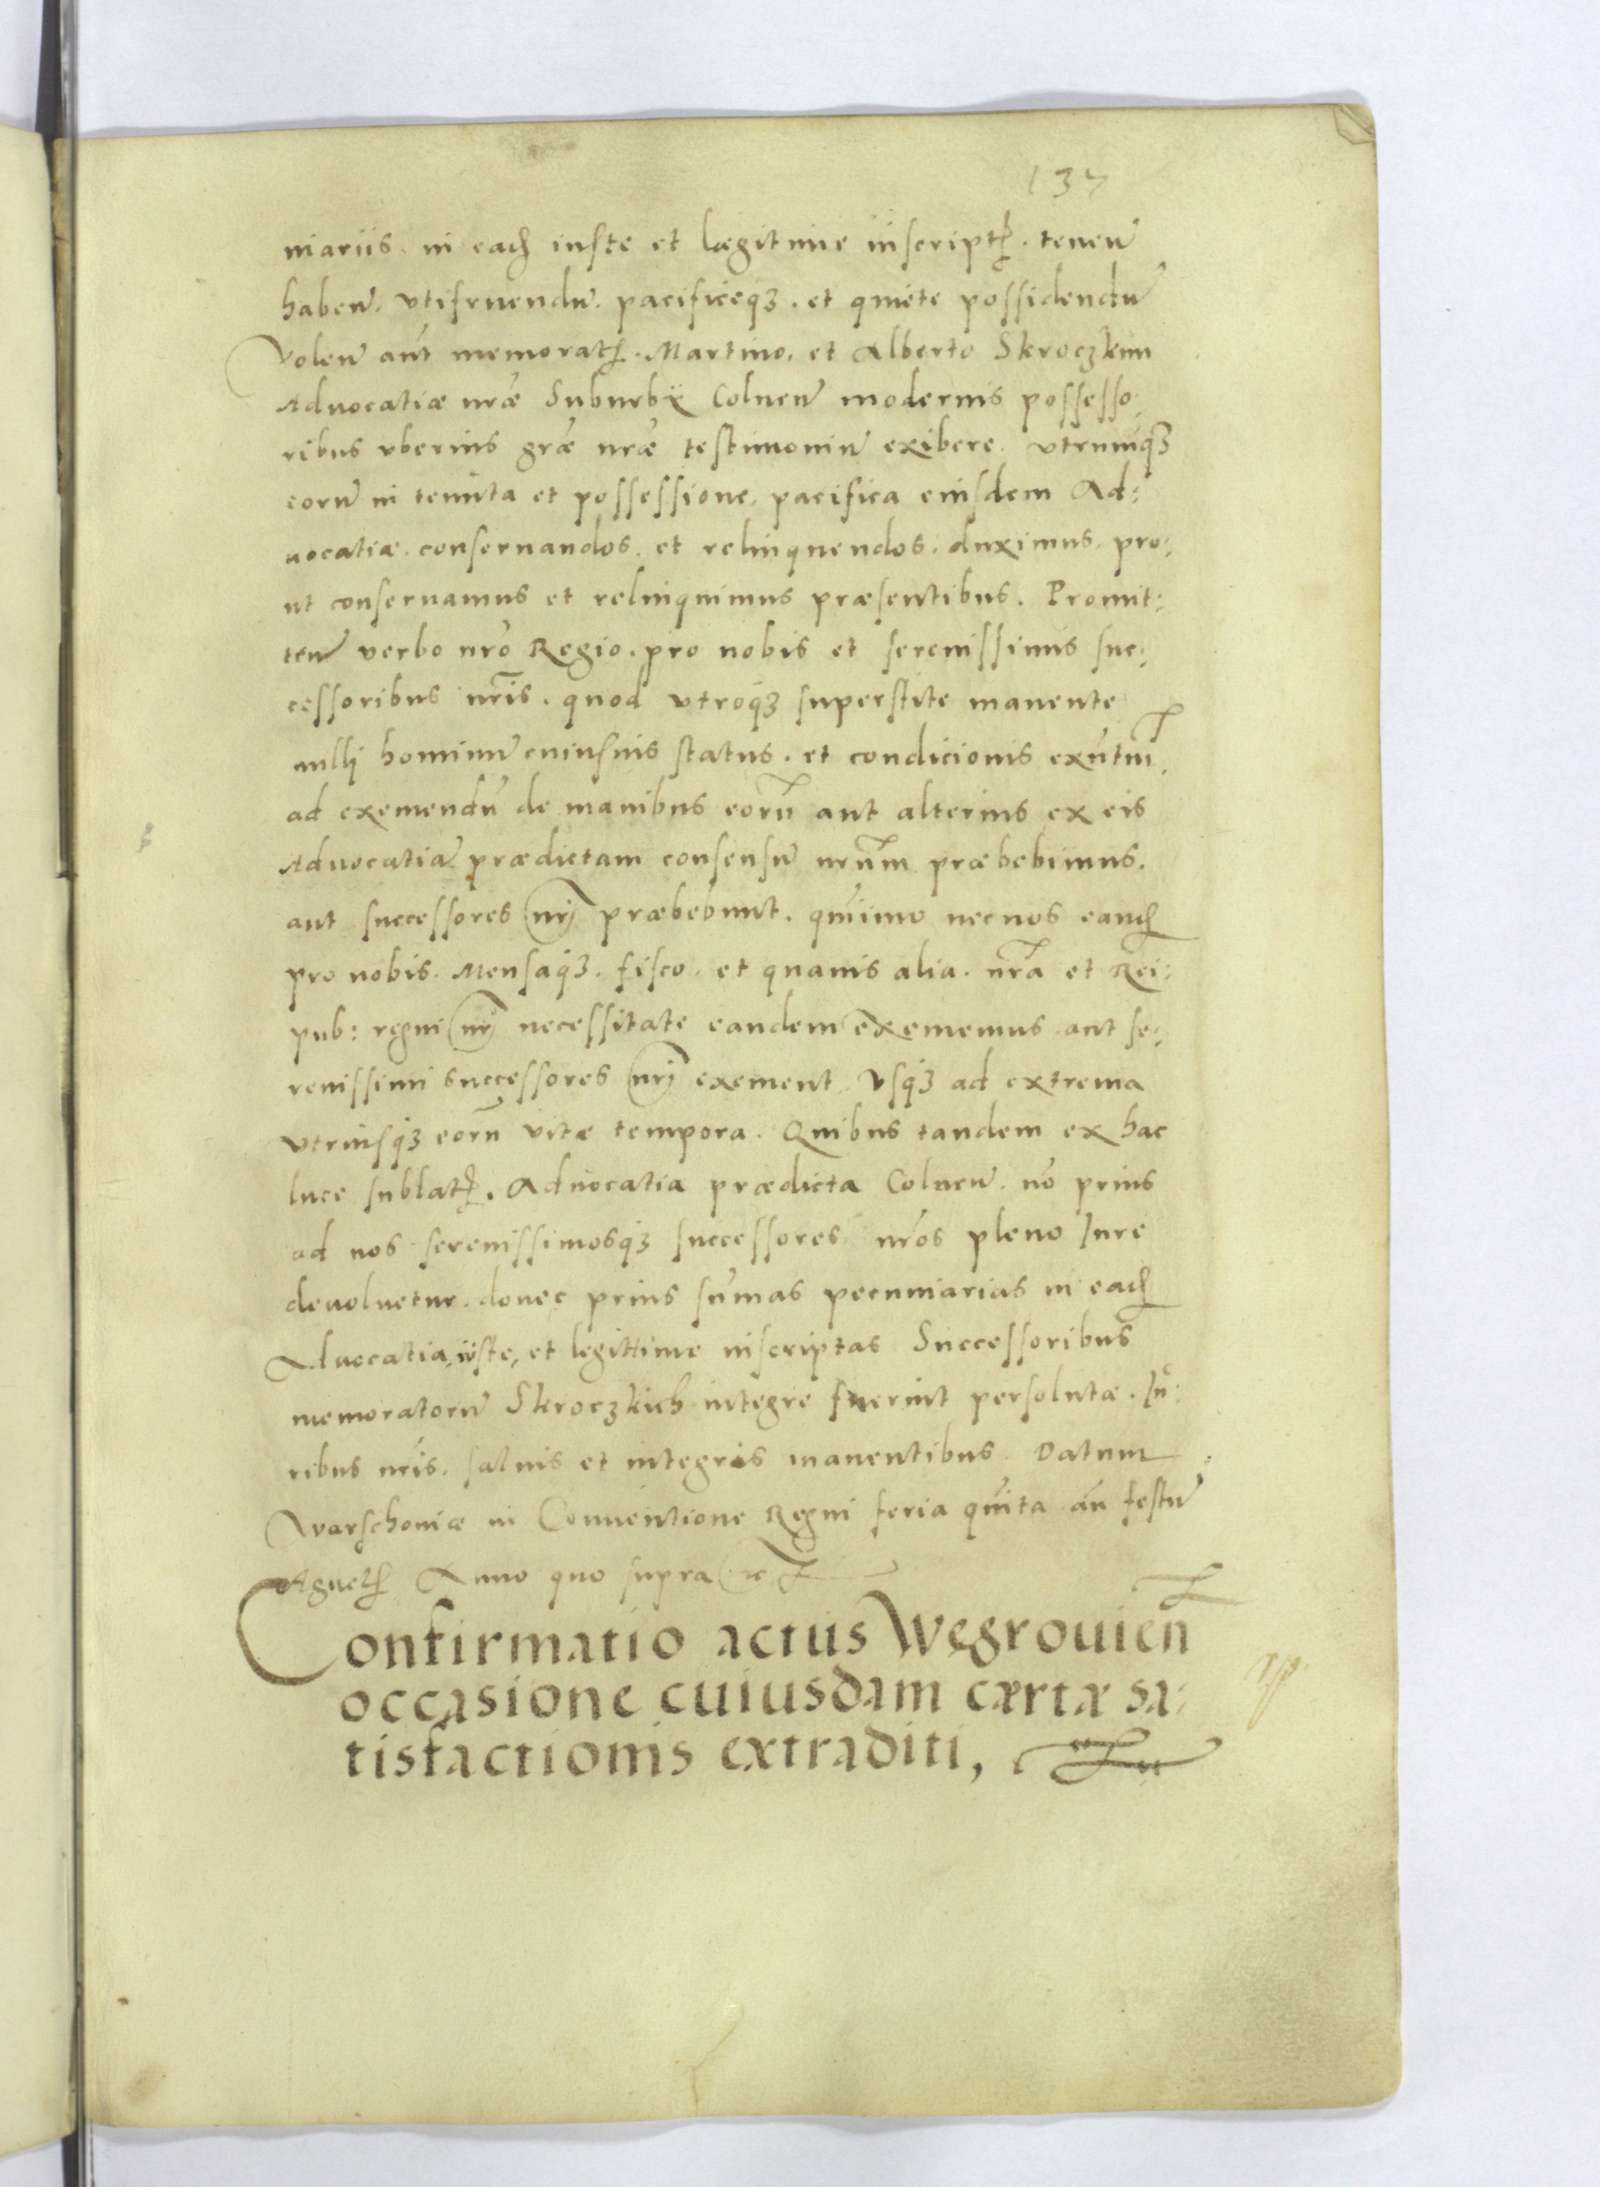 137
niariis. in eadẽ iuste et lægitime inscriptꝭ. tenen̄
haben̄. vtifruendū. pacificeqȝ. et quiete possidendū
Volen̄ aūt memoratꝭ. Martino. et Alberto Skroczkim
Aduocatiæ nr̃æ Suburbÿ Colnen̄ modernis possesso:
ribus vberius gr̃æ nr̃æ testimoniū exibere. vtrunqȝ
eorū in tenuta et possessione. pacifica eiusdem Ad:
uocatiæ. conseruandos. et relinquendos. duximus. pro:
ut conseruamus et relinquimus præsentibus. Promit:
ten̄ verbo nr̃o Regio. pro nobis et serenissimis suc:
cessoribus nr̃is. quod vtroqȝ superstite manente
nulli hominū cuiusuis status. et condicionis exn̄tium
ad exemendū de manibus eorū aut alterius ex eis
Aduocatiā prædictam consensū nr̃um præbebimus.
aut successores nrj̃ præbebunt. quīimo nec nos eandẽ
pro nobis. Mensaqȝ. fisco. et quauis alia. nr̃a et Rei:
pub: regni nrj̃ necessitate eandem exememus aut se:
renissimi successores nrj̃ exement vsqȝ ad extrema
vtriusqȝ eorū vitæ tempora. Quibus tandem ex hac
luce sublatꝭ. Aduocatia prædicta Colnen̄. nō prius
ad nos serenissimosqȝ successores nr̃os pleno Iure
deuoluetur. donec prius sum̄as pecuniarias in eadẽ
Aduocatia, iuste, et legittime inscriptas Successoribus
memoratorū Skroczkich integre fuerint persolutæ. Iu:
ribus nr̃is. saluis et integris manentibus. Datum
Warschouiæ in Conuentione Regni feria quīta an̄ festū
Agnetꝭ Anno quo supra
Confirmatio actus Wegrouien̄
occasione cuiusdam cærtæ sa:
tisfactionis extraditi,